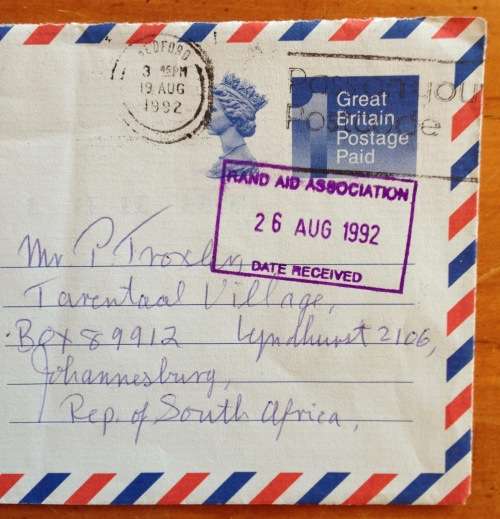 BEDFORD
3 45PM
19 AUG
1992
Great
Britain
Postage
Paid
RAND AID ASSOCIATION
26 AUG 1992
DATE RECEIVED
Mr P. Troxler
Tarentaal Village,
Box 89912 Lyndhurst 2106,
Johannesburg,
Rep. of South Africa,